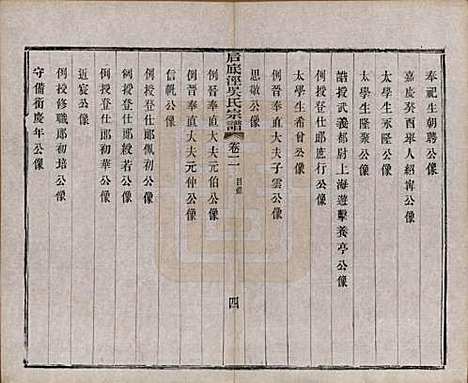 奉祀生朝聘公像
嘉慶癸酉舉人紹甯公像
太學生承隆公像
太學生隆聚公像
誥授武義都尉上海遊擊養亭公像
例授登仕郎應行公像
太學生希曾公像
例晉奉直大夫子雲公像
思敬公像
后底涇吳氏宗譜
卷二
目錄
四
例晉奉直大夫元伯公像
例晉奉直大夫元仲公像
信帆公像
例授登仕郎佩初公像
例授登仕郎毅若公像
例授登仕郎初華公像
例授修職郎初培公像
近宸公像
守備銜慶年公像